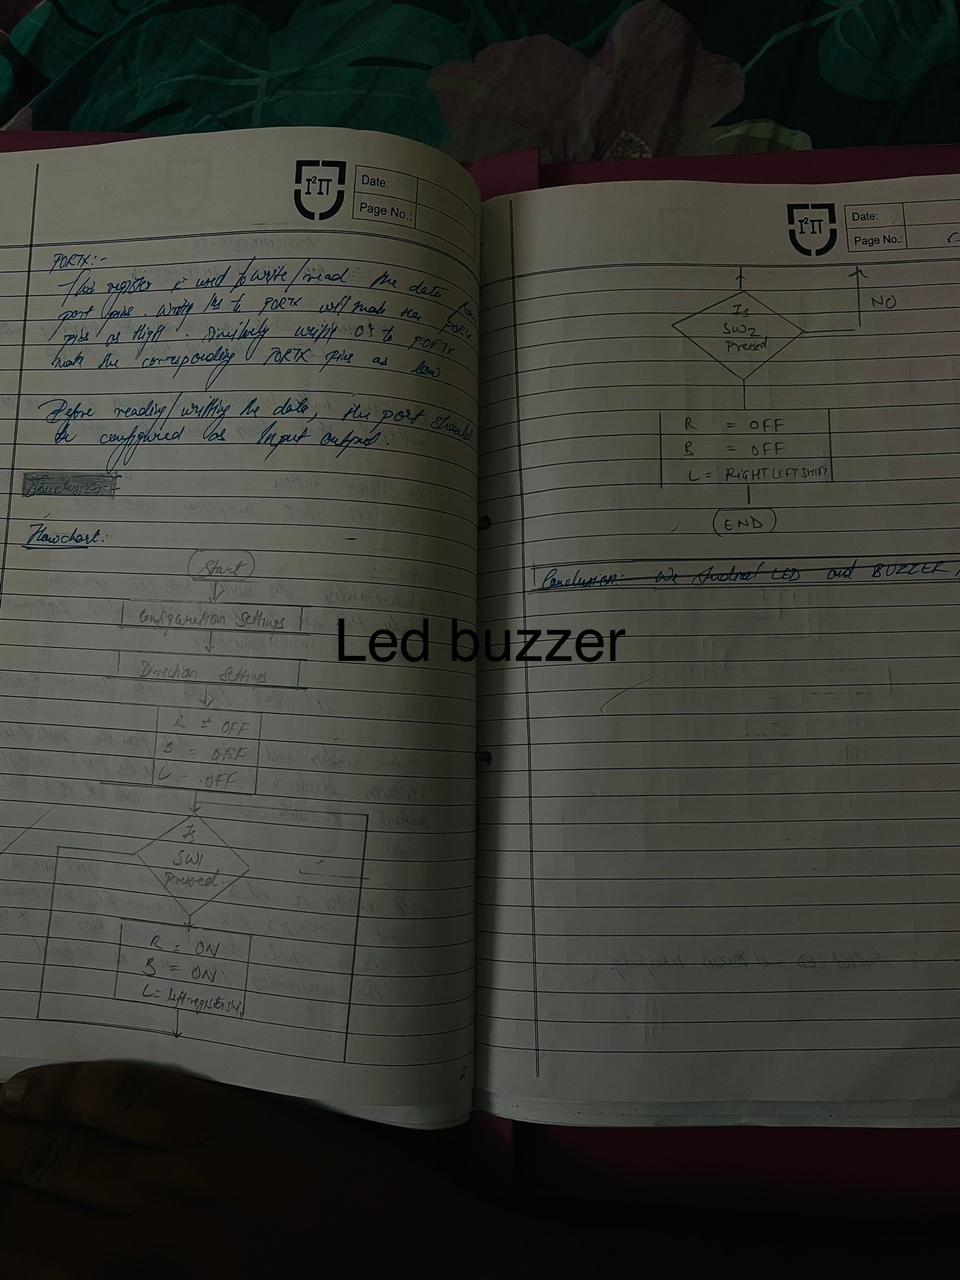 I²Π
Date:
Page No.:
PORTX:-
This register is used to write/read the data
port pins. Writing 1s to PORTX will make the PORTX
pins as High. Similarly writing 0's to PORTX
make the corresponding PORTX pins as low
Before reading/writting the data, the port should
be configured as Input output.
Conclusion
Flowchart:
Start
Configuration Settings
Direction Settings
R = OFF
B = OFF
L = OFF
Is
SW1
Pressed.
R = ON
B = ON
L = left register shif
2
I²Π
Date:
Page No.:
NO
Is
SW2
Pressed
R = OFF
B = OFF
L = RIGHT LEFT SHIFT
END
Conclusion: We studied LED and BUZZER
Led buzzer